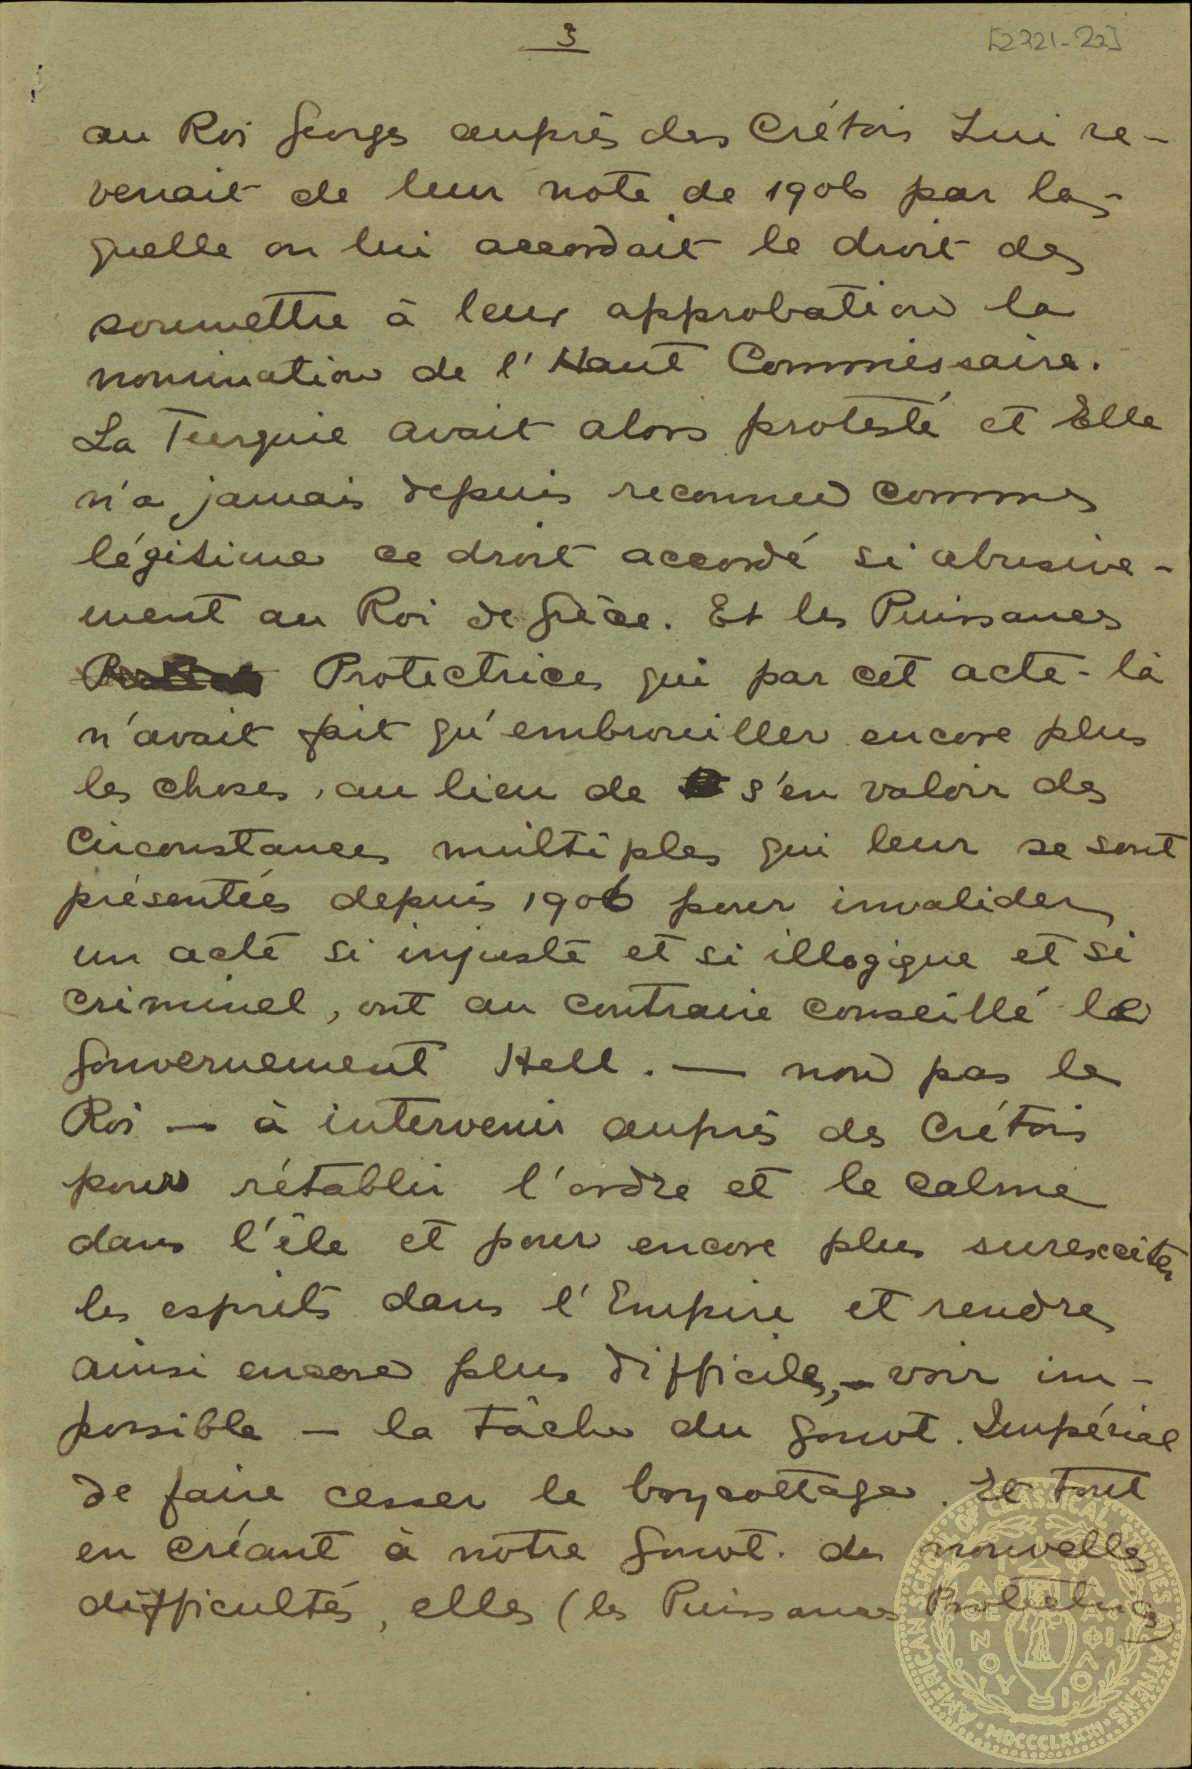 3
[2721-22]
au Roi Georges auprès des Crétois Lui re-
venait de leur note de 1906 par la-
quelle on lui accordait le droit de
soumettre à leur approbation la
nomination de l'Haut Commissaire.
La Turquie avait alors protesté et Elle
n'a jamais depuis reconnu comme
légitime ce droit accordé si abusive-
ment au Roi de Grèce. Et les Puissances
Protectrices qui par cet acte-là
n'avait fait qu'embrouiller encore plus
les choses, au lieu de s'en valoir des
circonstances multiples qui leur se sont
présentées depuis 1906 pour invalider
un acte si injuste et si illogique et si
criminel, ont au contraire conseillé le
Gouvernement Hell. — non pas le
Roi — à intervenir auprès des Crétois
pour rétablir l'ordre et le calme
dans l'île et pour encore plus surexciter
les esprits dans l'Empire et rendre
ainsi encore plus difficile, — voir im-
possible — la tâche du Gouvt. Impérial
de faire cesser le boycottage. Et tout
en créant à notre Gouvt. de nouvelles
difficultés, elles (les Puissances Protectrices)
AMERICAN SCHOOL OF CLASSICAL STUDIES ATHENS
MDCCCLXXXI